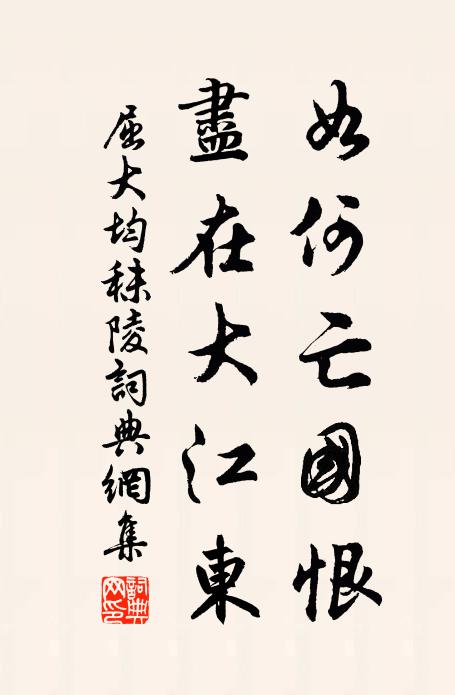 如何亡國恨
盡在大江東
屈大均秣陵詞典網集
詞典網印